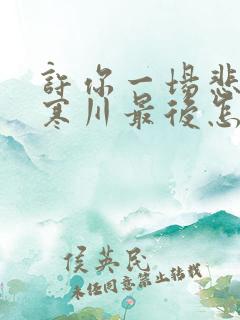 許你一場悲
寒川最後怎
侯英民
未經同意禁止轉載